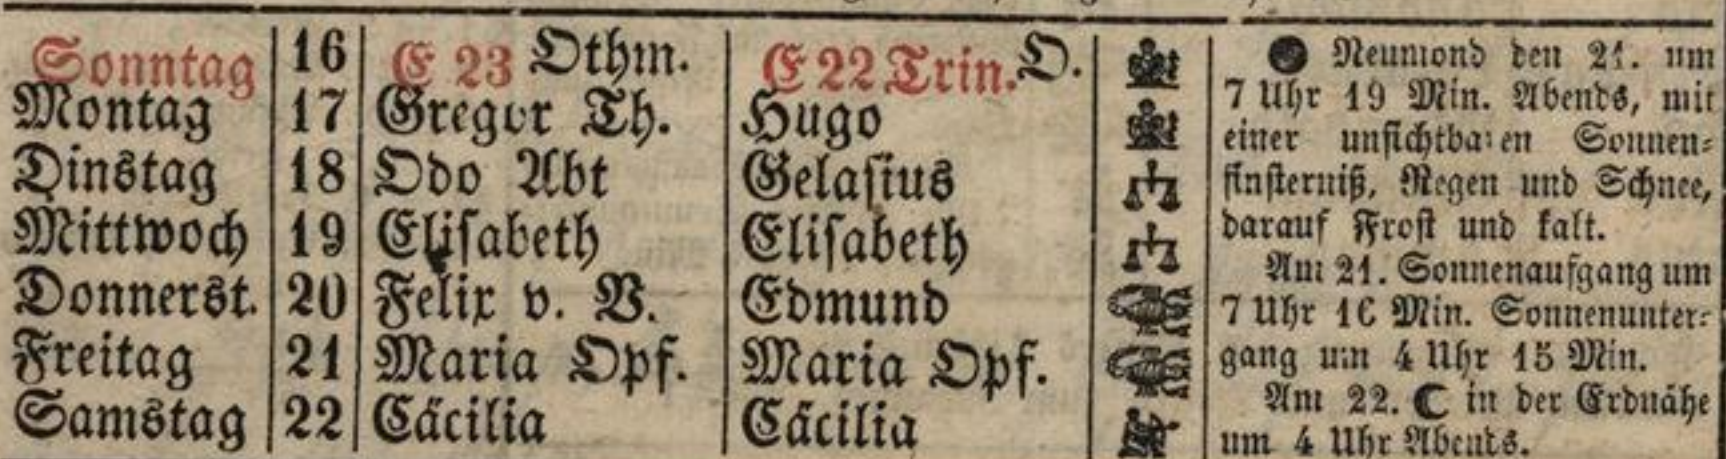 Sonntag 16 E 23 Othm. E 22 Trin. O.
Montag 17 Gregor Th. Hugo
Dinstag 18 Odo Abt Gelasius
Mittwoch 19 Elisabeth Elisabeth
Donnerst. 20 Felix v. V. Edmund
Freitag 21 Maria Opf. Maria Opf.
Samstag 22 Cäcilia Cäcilia
Neumond den 21. um
7 Uhr 19 Min. Abends, mit
einer unsichtbaren Sonnen-
finsterniß, Regen und Schnee,
darauf Frost und kalt.
Am 21. Sonnenaufgang um
7 Uhr 16 Min. Sonnenunter-
gang um 4 Uhr 15 Min.
Am 22. ☾ in der Erdnähe
um 4 Uhr Abends.